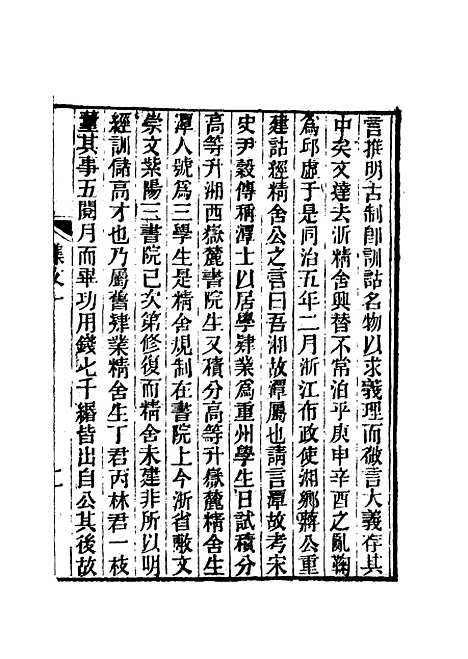 言推明古制卽訓詁名物以求義理而微言大義存其
中矣文達去浙精舍興替不常洎乎庚申辛酉之亂鞠
為邱虛于是同治五年二月浙江布政使湘鄉蔣公重
建詁經精舍公之言曰吾湘故潭屬也請言潭故考宋
史尹穀傳稱潭士以居學肄業爲重州學生日試積分
高等升湘西嶽麓書院生又積分高等升嶽麓精舍生
潭人號爲三學生是精舍規制在書院上今浙省敷文
崇文紫陽三書院已次第修復而精舍未建非所以明
經訓儲高才也乃屬舊肄業精舍生丁君丙林君一枝
董其事五閱月而畢功用錢七千緡皆出自公其後故